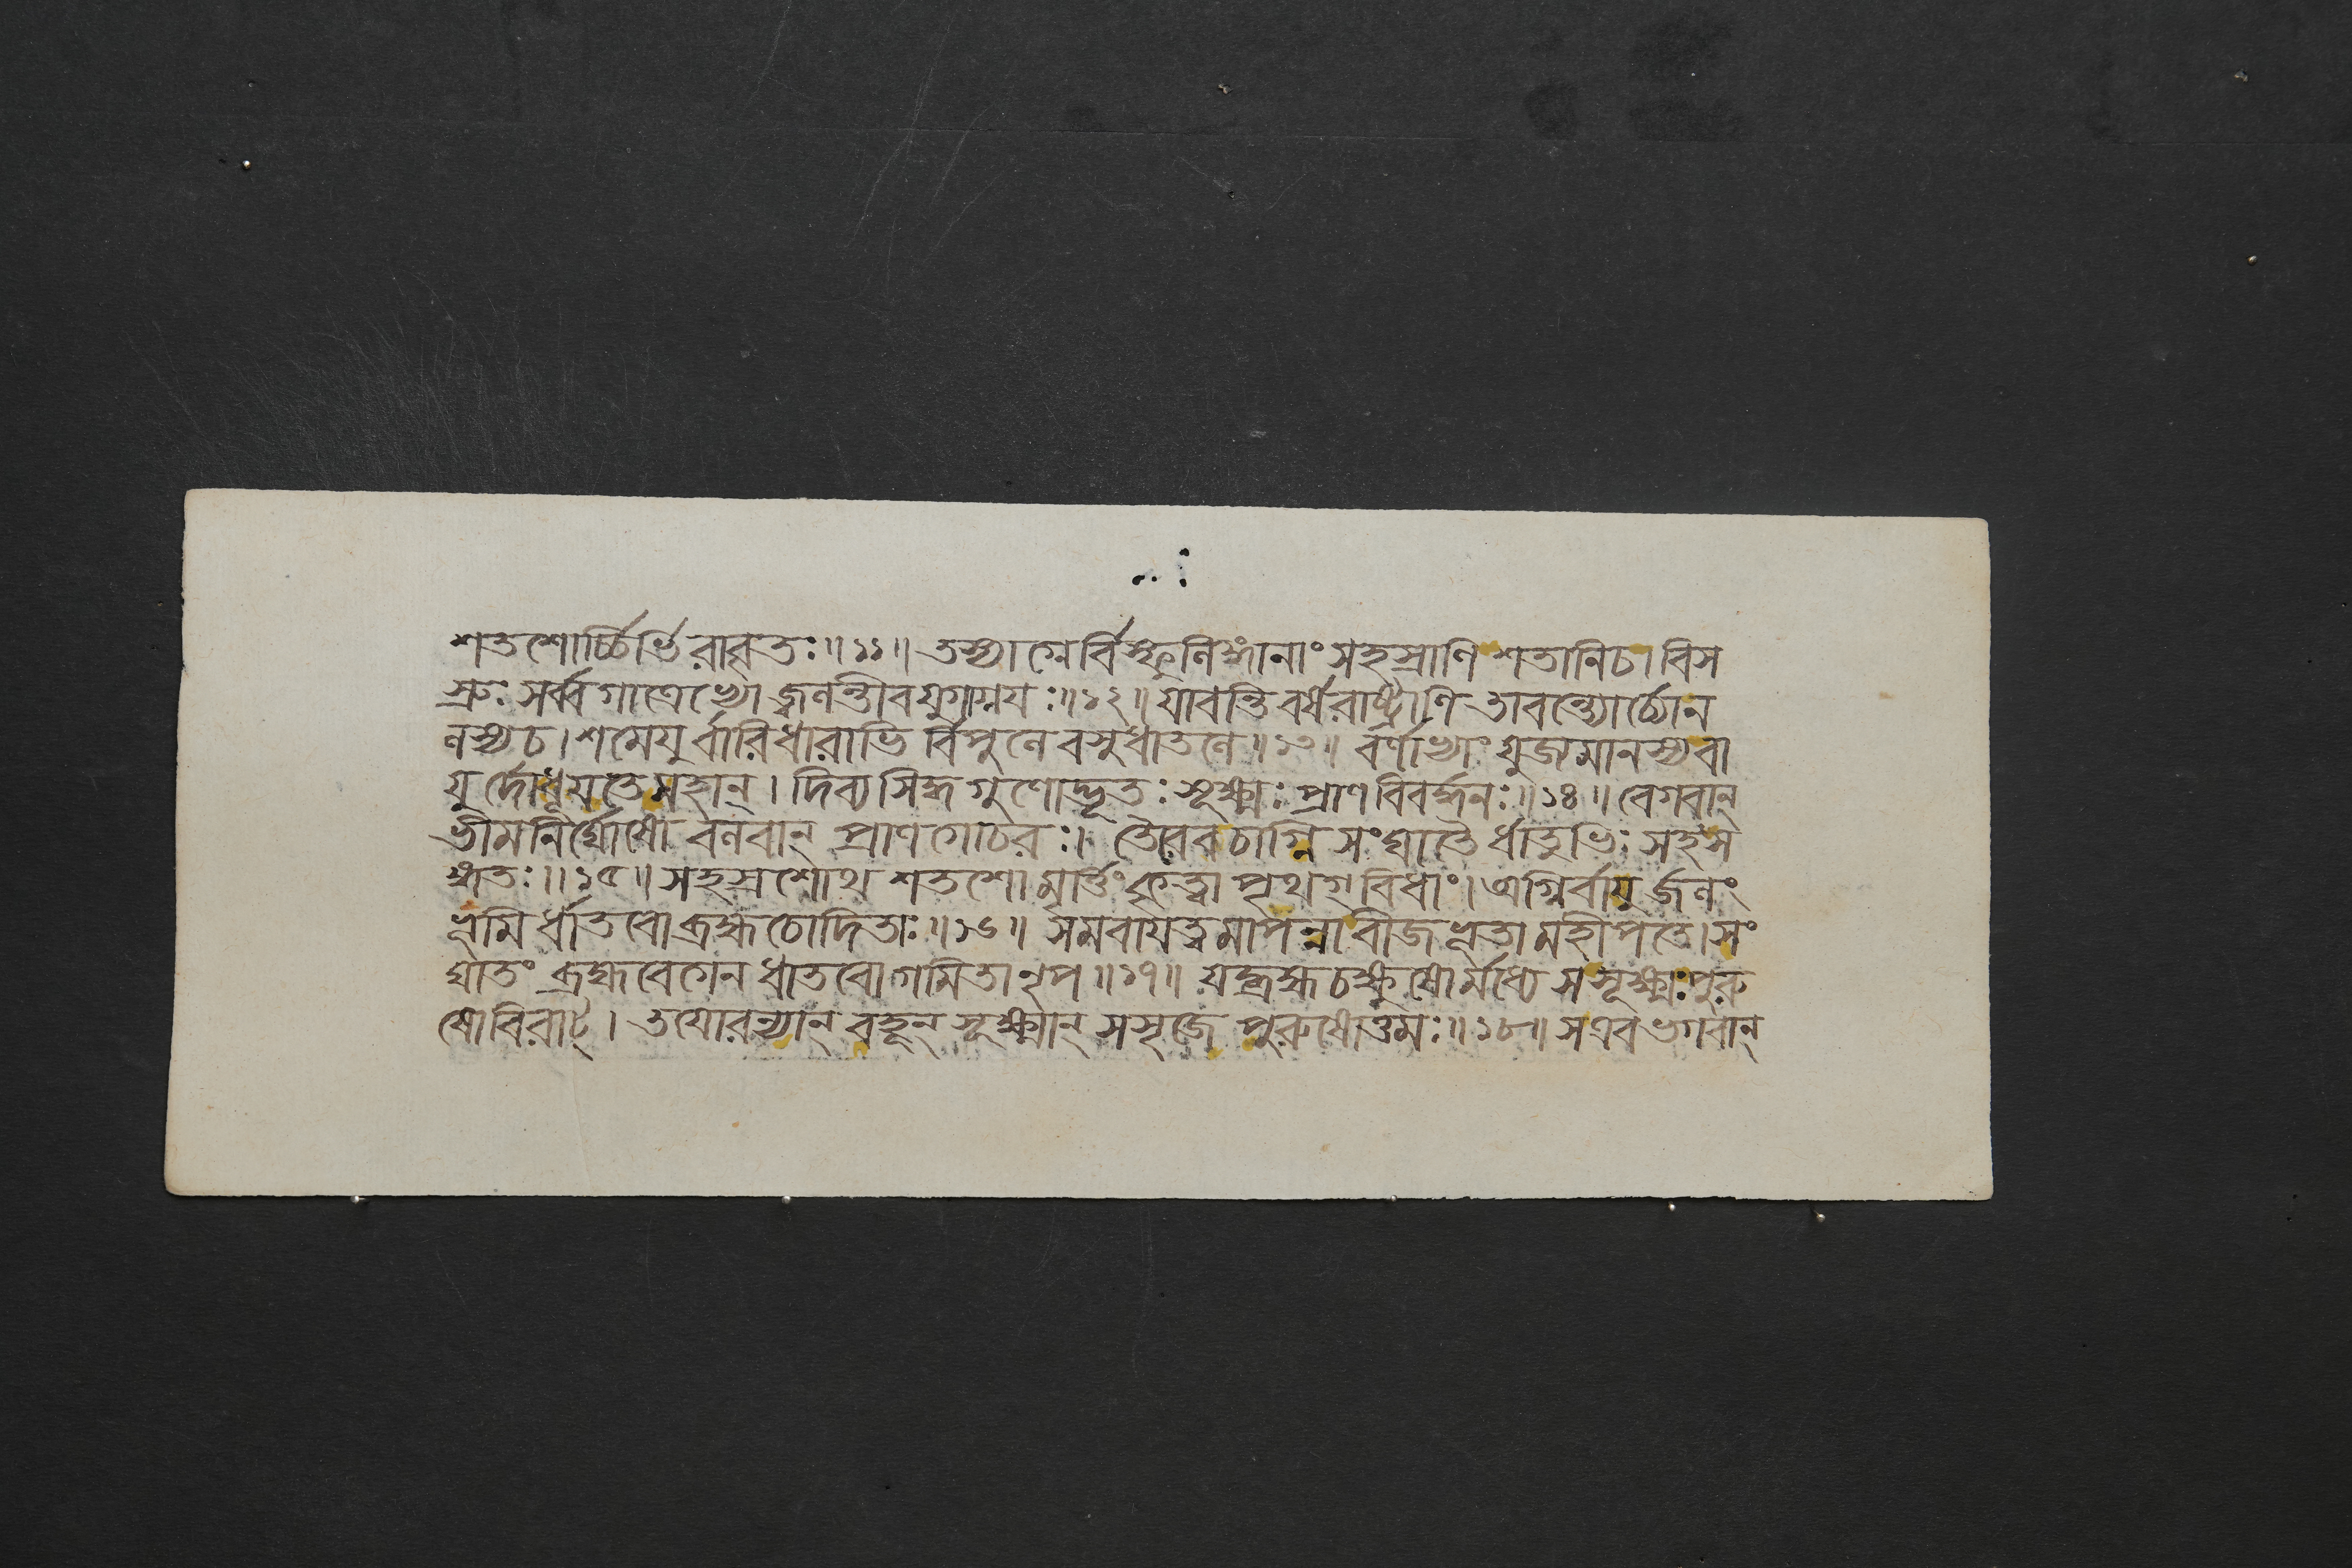 শতশোর্চ্চির্ভিরাবৃতঃ॥১১॥ তস্যাগ্নের্বিস্ফুলিঙ্গানাং সহস্রাণি শতানিচ। বিস
স্রুঃ সর্ব্বগাত্রেভ্যো জ্বলন্তীব যুগাগ্নয়ঃ॥১২॥ যাবন্তি বর্ষরাষ্ট্রাণি তাবন্ত্যোর্চ্চোন
লস্যচ। শমেযু র্বারিধারাভি র্বিপুলে বসুধাতলে॥১৩॥ বর্ণাভ্যাং যুজ্যমানস্য বা
যু র্দোধূয়তে মহান্। দিব্য সিদ্ধ গুণোদ্ভূতঃ সূক্ষ্মঃ প্রাণ বিবর্দ্ধনঃ॥১৪॥ বেগবান্
ভীমনির্ঘোষো বলবান্ প্রাণগোচরঃ। তৌববচাগ্নি সংঘাতৈ র্ধাতুভিঃ সহস
ঙ্গতঃ॥১৫॥ সহস্রশোথ শতশো মার্ত্তং কৃত্বা পৃথগ্ বিধাং। অগ্নির্বায়ু র্জলং
ভূমি র্ধাতবো ব্রহ্মচোদিতাঃ॥১৬॥ সমবায়ত্বমাপন্না বীজভূতা মহীপতে। সং
ঘাতং ব্রহ্মবেগেন ধাতবো গমিতা নৃপ॥১৭॥ যদ্ব্রহ্ম চক্ষুষো র্মধ্যে স সূক্ষ্মঃ পুরু
ষো বিরাট্। তয়োরন্যান্ বহূন্ সূক্ষ্মান্ সসৃজে পুরুষোত্তমঃ॥১৮॥ সএব ভগবান্